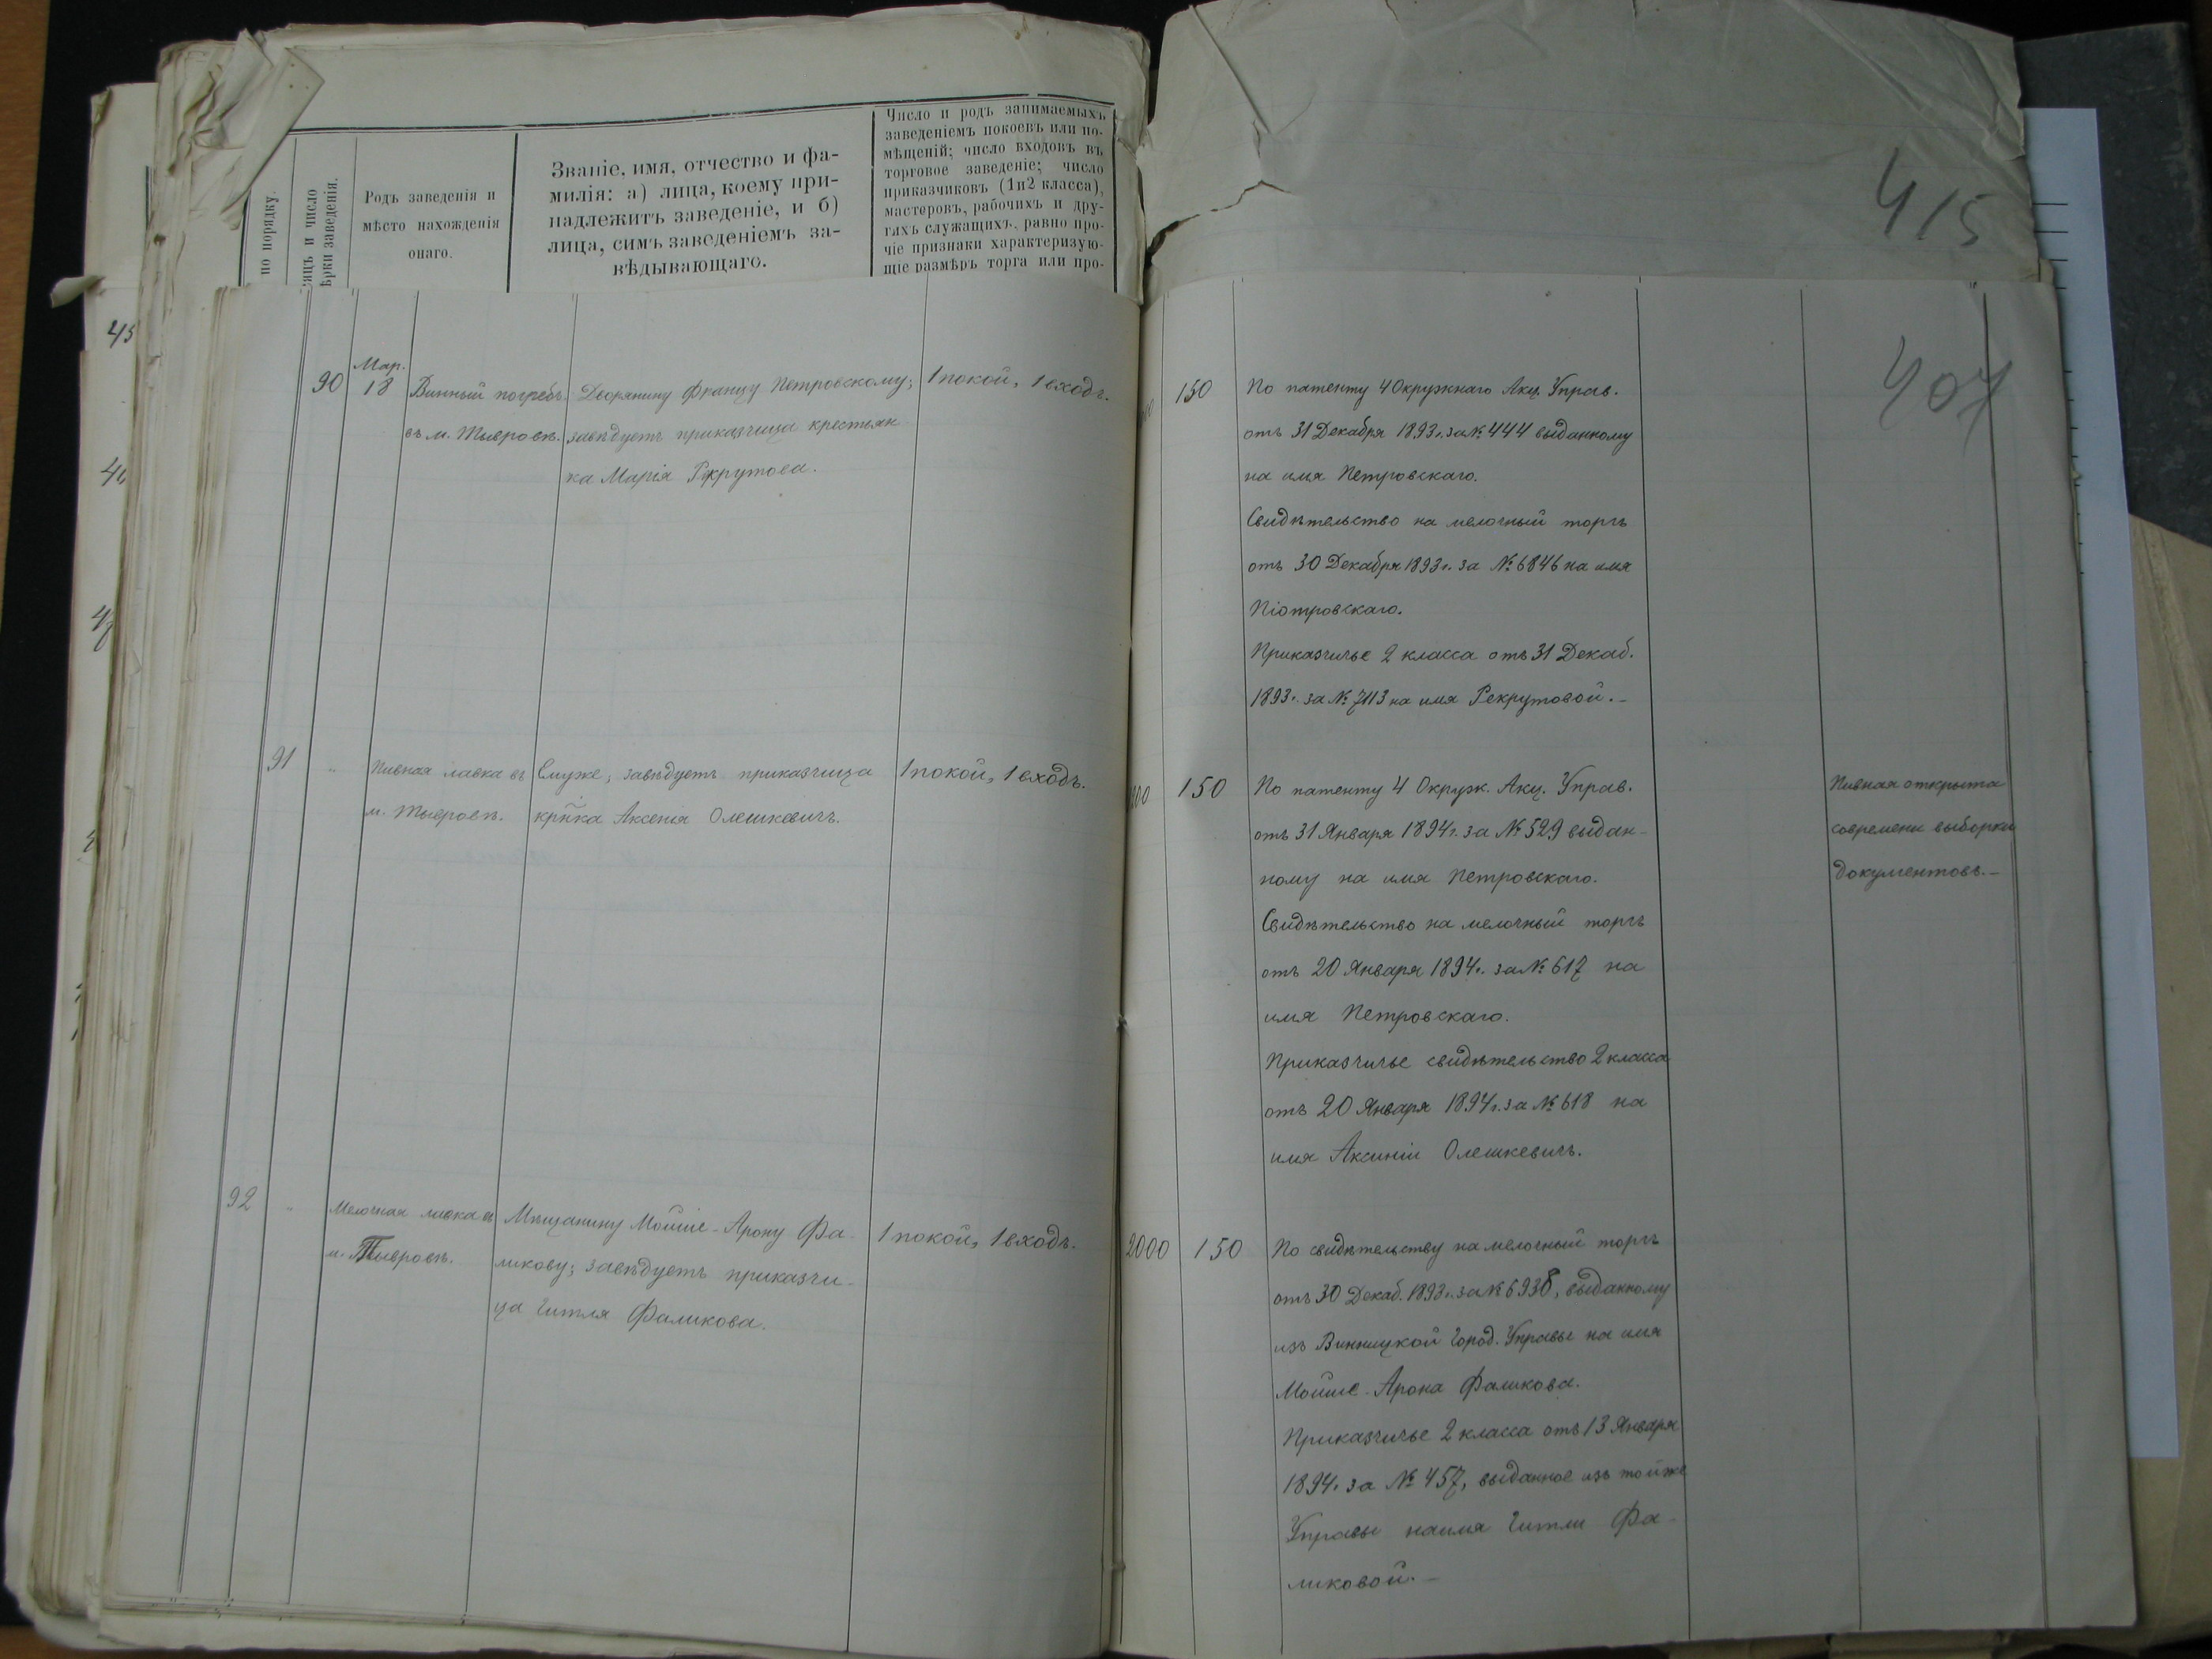 415
407
по порядку.
сяцъ и число
ѣрки заведенія.
Родъ заведенія и
мѣсто нахожденія
онаго.
Званіе, имя, отчество и фа-
милія: а) лица, коему при-
надлежитъ заведеніе, и б)
лица, симъ заведеніемъ за-
вѣдывающаго.
Число и родъ занимаемыхъ
заведеніемъ покоевъ или по-
мѣщеній; число входовъ въ
торговое заведеніе; число
приказчиковъ (1и2 класса),
мастеровъ, рабочихъ и дру-
гихъ служащихъ, равно про-
чіе признаки характеризую-
щіе размѣръ торга или про-
90
Мар.
18
Винный погребъ
въ м. Тывровѣ.
Дворянину Францу Петровскому;
завѣдуетъ приказчица крестьян
ка Марія Рекрутова.
1 покой, 1 входъ.
150
По патенту 4 Окружнаго Акц. Управ.
отъ 31 Декабря 1893г. за № 444 выданному
на имя Петровскаго.
Свидѣтельство на мелочный торгъ
отъ 30 Декабря 1893г. за № 6846 на имя
Піотровскаго.
Приказчичье 2 класса отъ 31 Декаб.
1893г. за № 7113 на имя Рекрутовой.-
91
"
Пивная лавка въ
м. Тывровѣ.
Ему же; завѣдуетъ приказчица
кр̃нка Аксенія Олешкевичъ.
1 покой, 1 входъ.
150
По патенту 4 Окруж. Акц. Управ.
отъ 31 Января 1894г. за № 529 выдан-
ному на имя Петровскаго.
Свидѣтельство на мелочный торгъ
отъ 20 Января 1894г. за № 617 на
имя Петровскаго.
Приказчичье свидѣтельство 2 класса
отъ 20 Января 1894г. за № 618 на
имя Аксиніи Олешкевичъ.
Пивная открыта
современи выборки
документовъ.-
92
"
Мелочная лавка въ
м. Тывровѣ.
Мѣщанину Мойше-Арону Фа-
ликову; завѣдуетъ приказчи-
ца Гитля Фаликова.
1 покой, 1 входъ.
2000
150
По свидѣтельству на мелочный торгъ
отъ 30 Декаб. 1893г. за № 6938, выданному
изъ Винницкой Город. Управы на имя
Мойше-Арона Фаликова.
Приказчичье 2 класса отъ 13 Января
1894г. за № 457, выданное изъ тойже
Управы наимя Гитли Фа-
ликовой.-